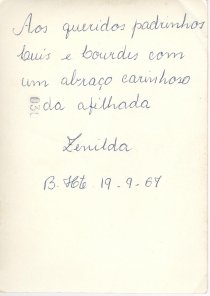 Aos queridos padrinhos
Luis e Lourdes com
um abraço carinhoso
da afilhada
Zenilda
B. Hte 19-9-67